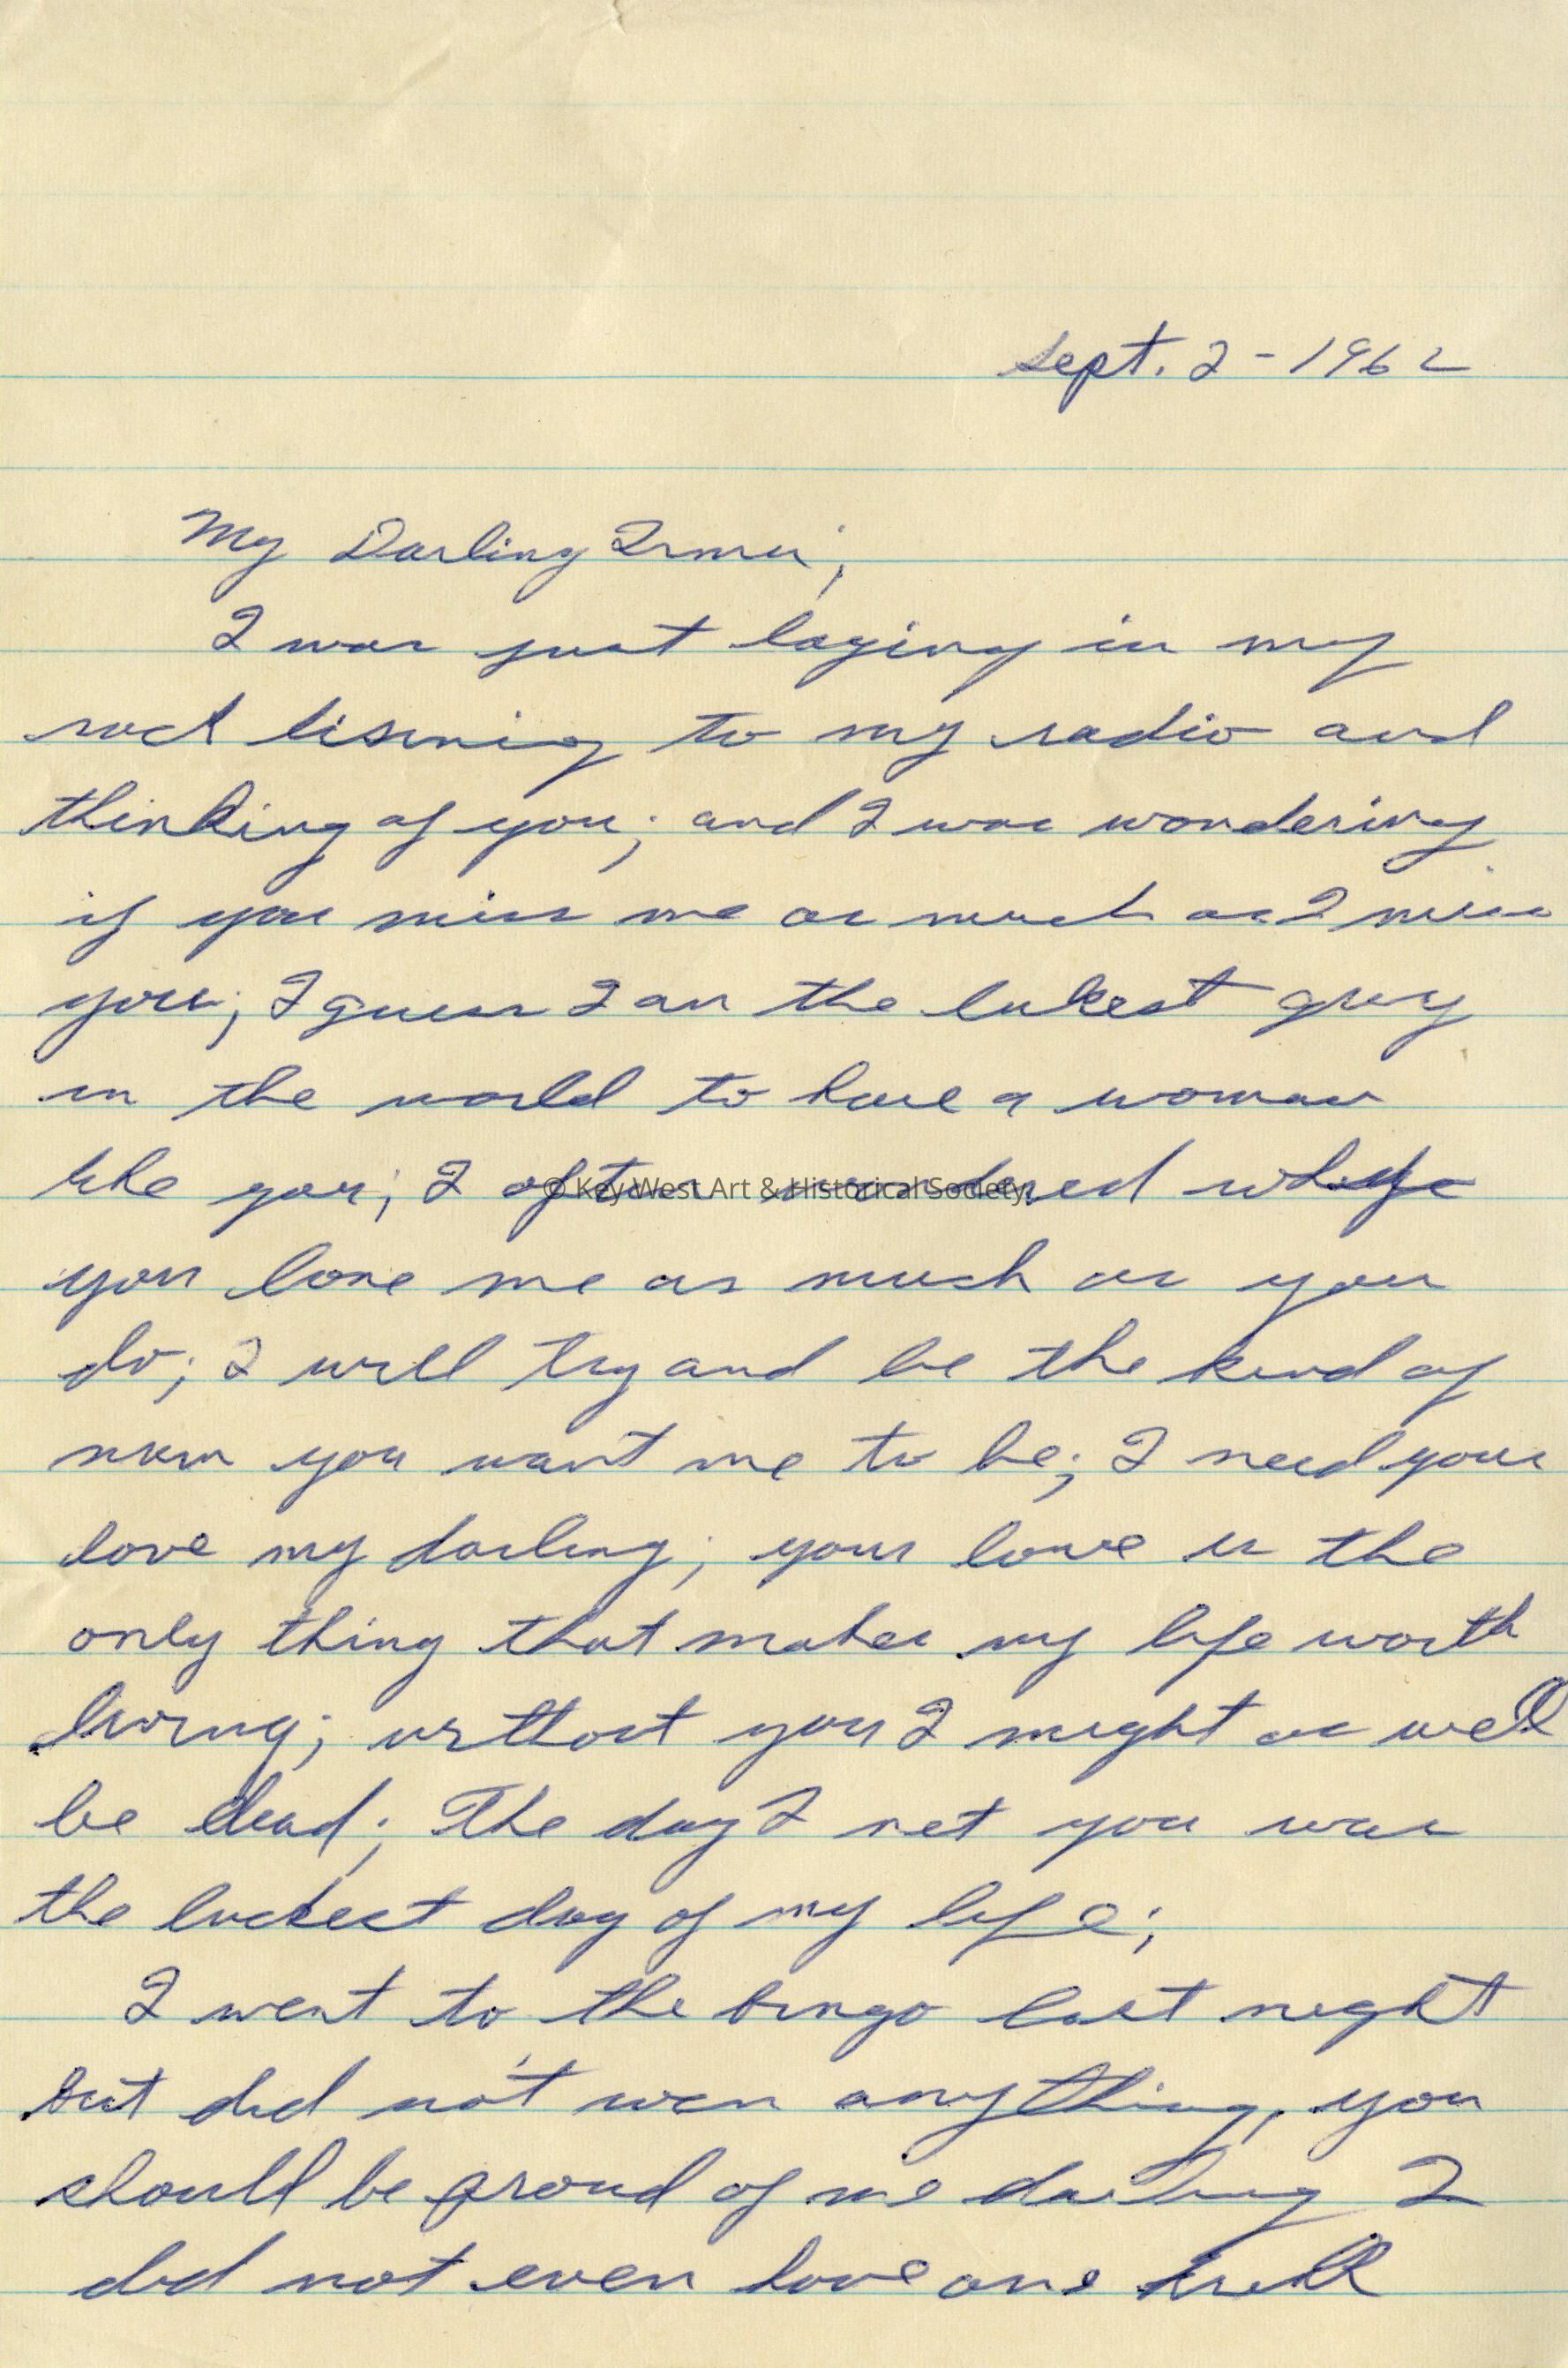 Sept. 2 - 1962
My Darling Irma;
I was just laying in my
rack lisning to my radio and
thinking of you; and I was wondering
if you miss me as much as I miss
you; I guess I am the lukest guy
in the world to have a woman
like you; I often wondered why
© Key West Art & Historical Society.
you love me as much as you
do; I will try and be the kind of
man you want me to be; I need your
love my darling; your love is the
only thing that makes my life worth
living; without you I might as well
be dead; The day I met you was
the luckest day of my life;
I went to the bingo last night
but did not win anything, you
should be proud of me darling I
did not even have one